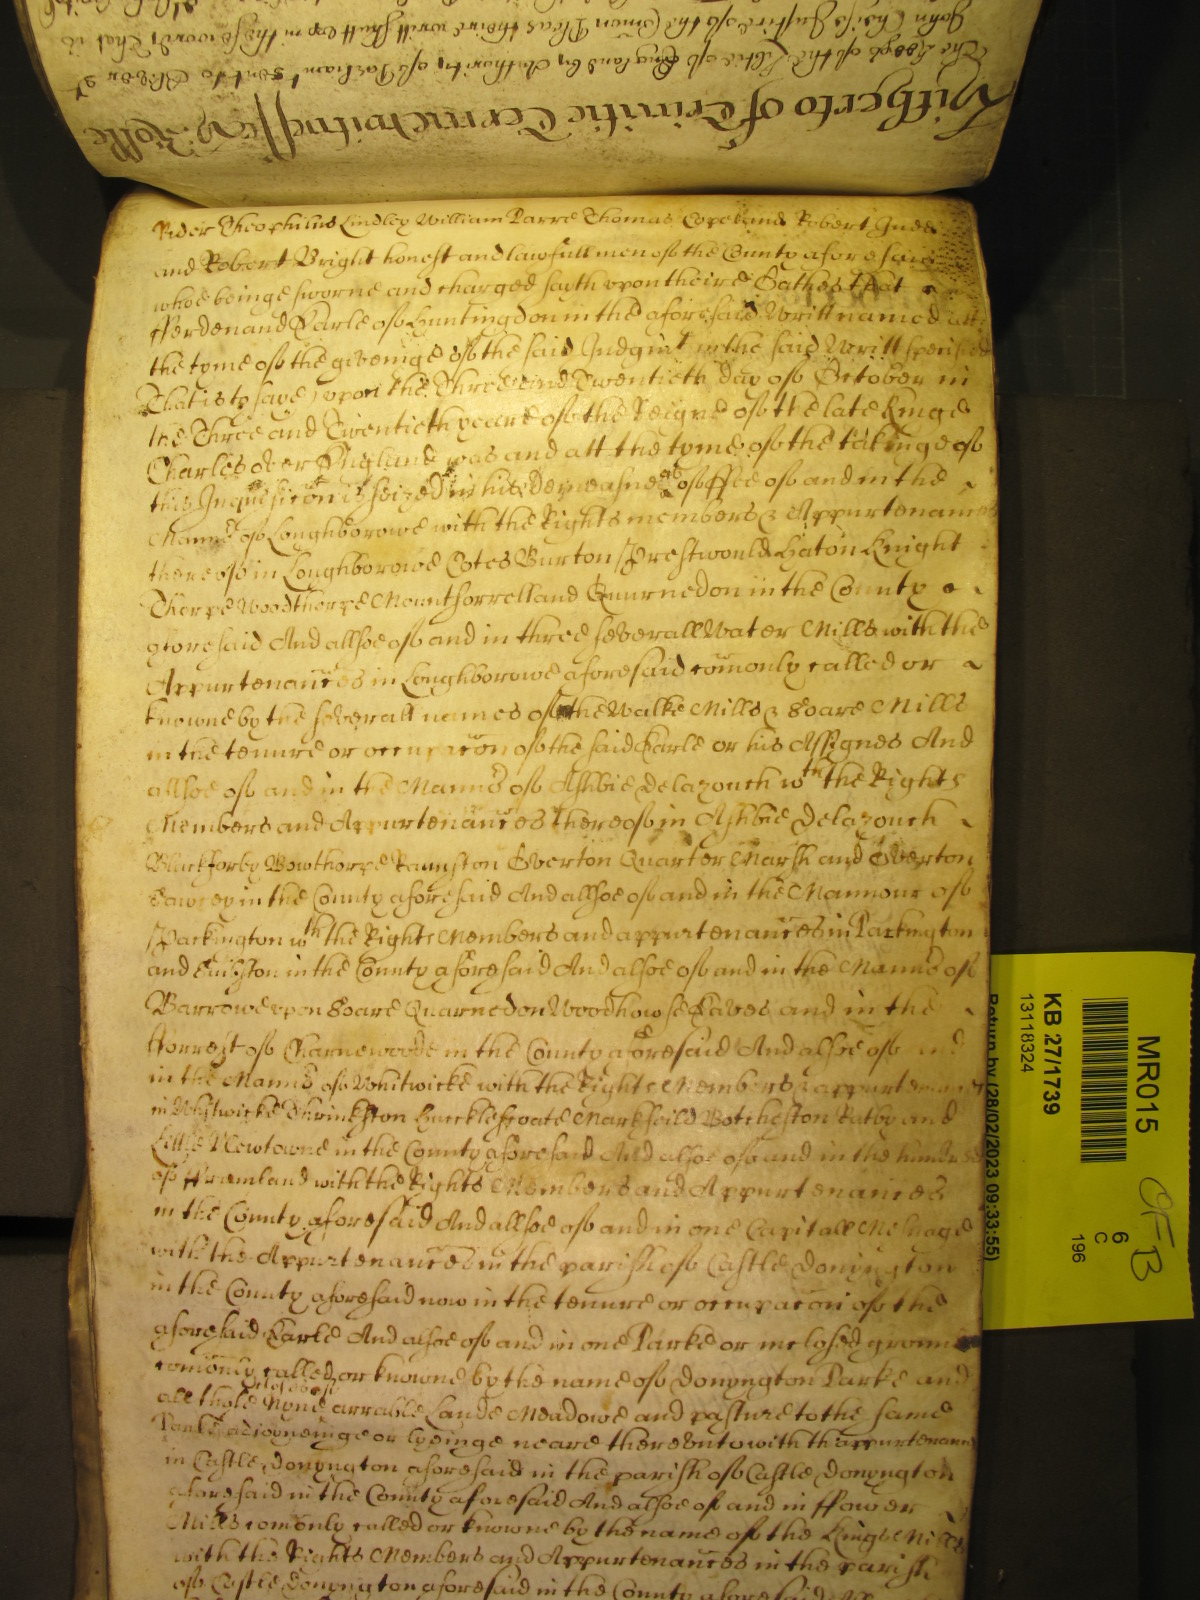 Hitherto of Trinitie Terme witnesse H: Rolle
The Keeps of the Libtie of England by Authoritie of Parliamt sent to Oliver St
John Cheife Justice of the Comon Pleas theire writt shutt upp in these words That is
Rider Theophilus Lindley William Parre Thomas Copeland Robert Judd
and Robert Bright honest and lawfull men of the County aforesaid
whoe beinge sworne and charged sayth vpon theire Oathes that
fferdenand Earle of Huntingdon in the aforesaid Writt named att
the tyme of the giveinge of the said Judgmt in the said Writt specified
That is to saye, vpon the Three and Twentieth Day of October in
the Three and Twentieth yeare of the Reigne of the late Kinge
Charles over England was and att the tyme of the takinge of
this Inquisicon is seized in his Demeasne as of ffee of and in the
Mannor of Loughborowe with the Rights members & Appurtenances
thereof in Loughborowe Cotes Burton Prestwould Hatōn Knight
Thorpe Woodthorpe Mountsorrell and Quurnedon in the County
aforesaid And allsoe of and in three severall Water Mills with the
Appurtenances in Loughborowe aforesaid comonly called or
knowne by the severall names of the Walke Mills & Soare Mills
in the tenure or occupacon of the said Earle or his Assignes And
allsoe of and in the Mannor of Ashbie Delazouch wth the Rights
Members and Appurtenances thereof in Ashbie Delazouch
Blackforby Bowthorpe Raunston Overton Quarter Marsh and Overton
Sawcey in the County aforesaid And allsoe of and in the Mannour of
Packington wth the Rights Members and appurtenances in Packington
and in the County aforesaid And alsoe of and in the Mannor of
Barrowe vpon Soare Quarnedon Woodhowse Eaves and in the
fforrest of Charnewoode in the County aforesaid And alsoe of and
in the Mannor of Whitwicke with the Rights Members & appurtenances
in Whitwicke Shrinkston Hucklescoate Markfeild Botcheston Ratby and
Little Newtowne in the County aforesaid And alsoe of and in the hundred
of fframland with the Rights Members and Appurtenances
in the County aforesaid And allsoe of and in one Capitall Messuage
with the Appurtenances in the parish of Castle Donyngton
in the County aforesaid now in the tenure or occupacon of the
aforesaid Earle And alsoe of and in one Parke or inclosed ground
comonly called or knowne by the name of Donyngton Parke and
all those closes of arrable Lande Meadowe and pasture to the same
Parke adioyneinge or lyeinge neare therevnto with thappurtenances
in Castle Donyngton aforesaid in the parish of Castle Donyngton
aforesaid in the County aforesaid And alsoe of and in ffower
Mills comonly called or knowne by the name of the Kings Mills
with the Rights Members and Appurtenances in the parish
of Castle Donyngton aforesaid in the County aforesaid
MR015
KB 27/1739
13118324
Return by (28/02/2023 09:33:55)
6
C
196
OFB